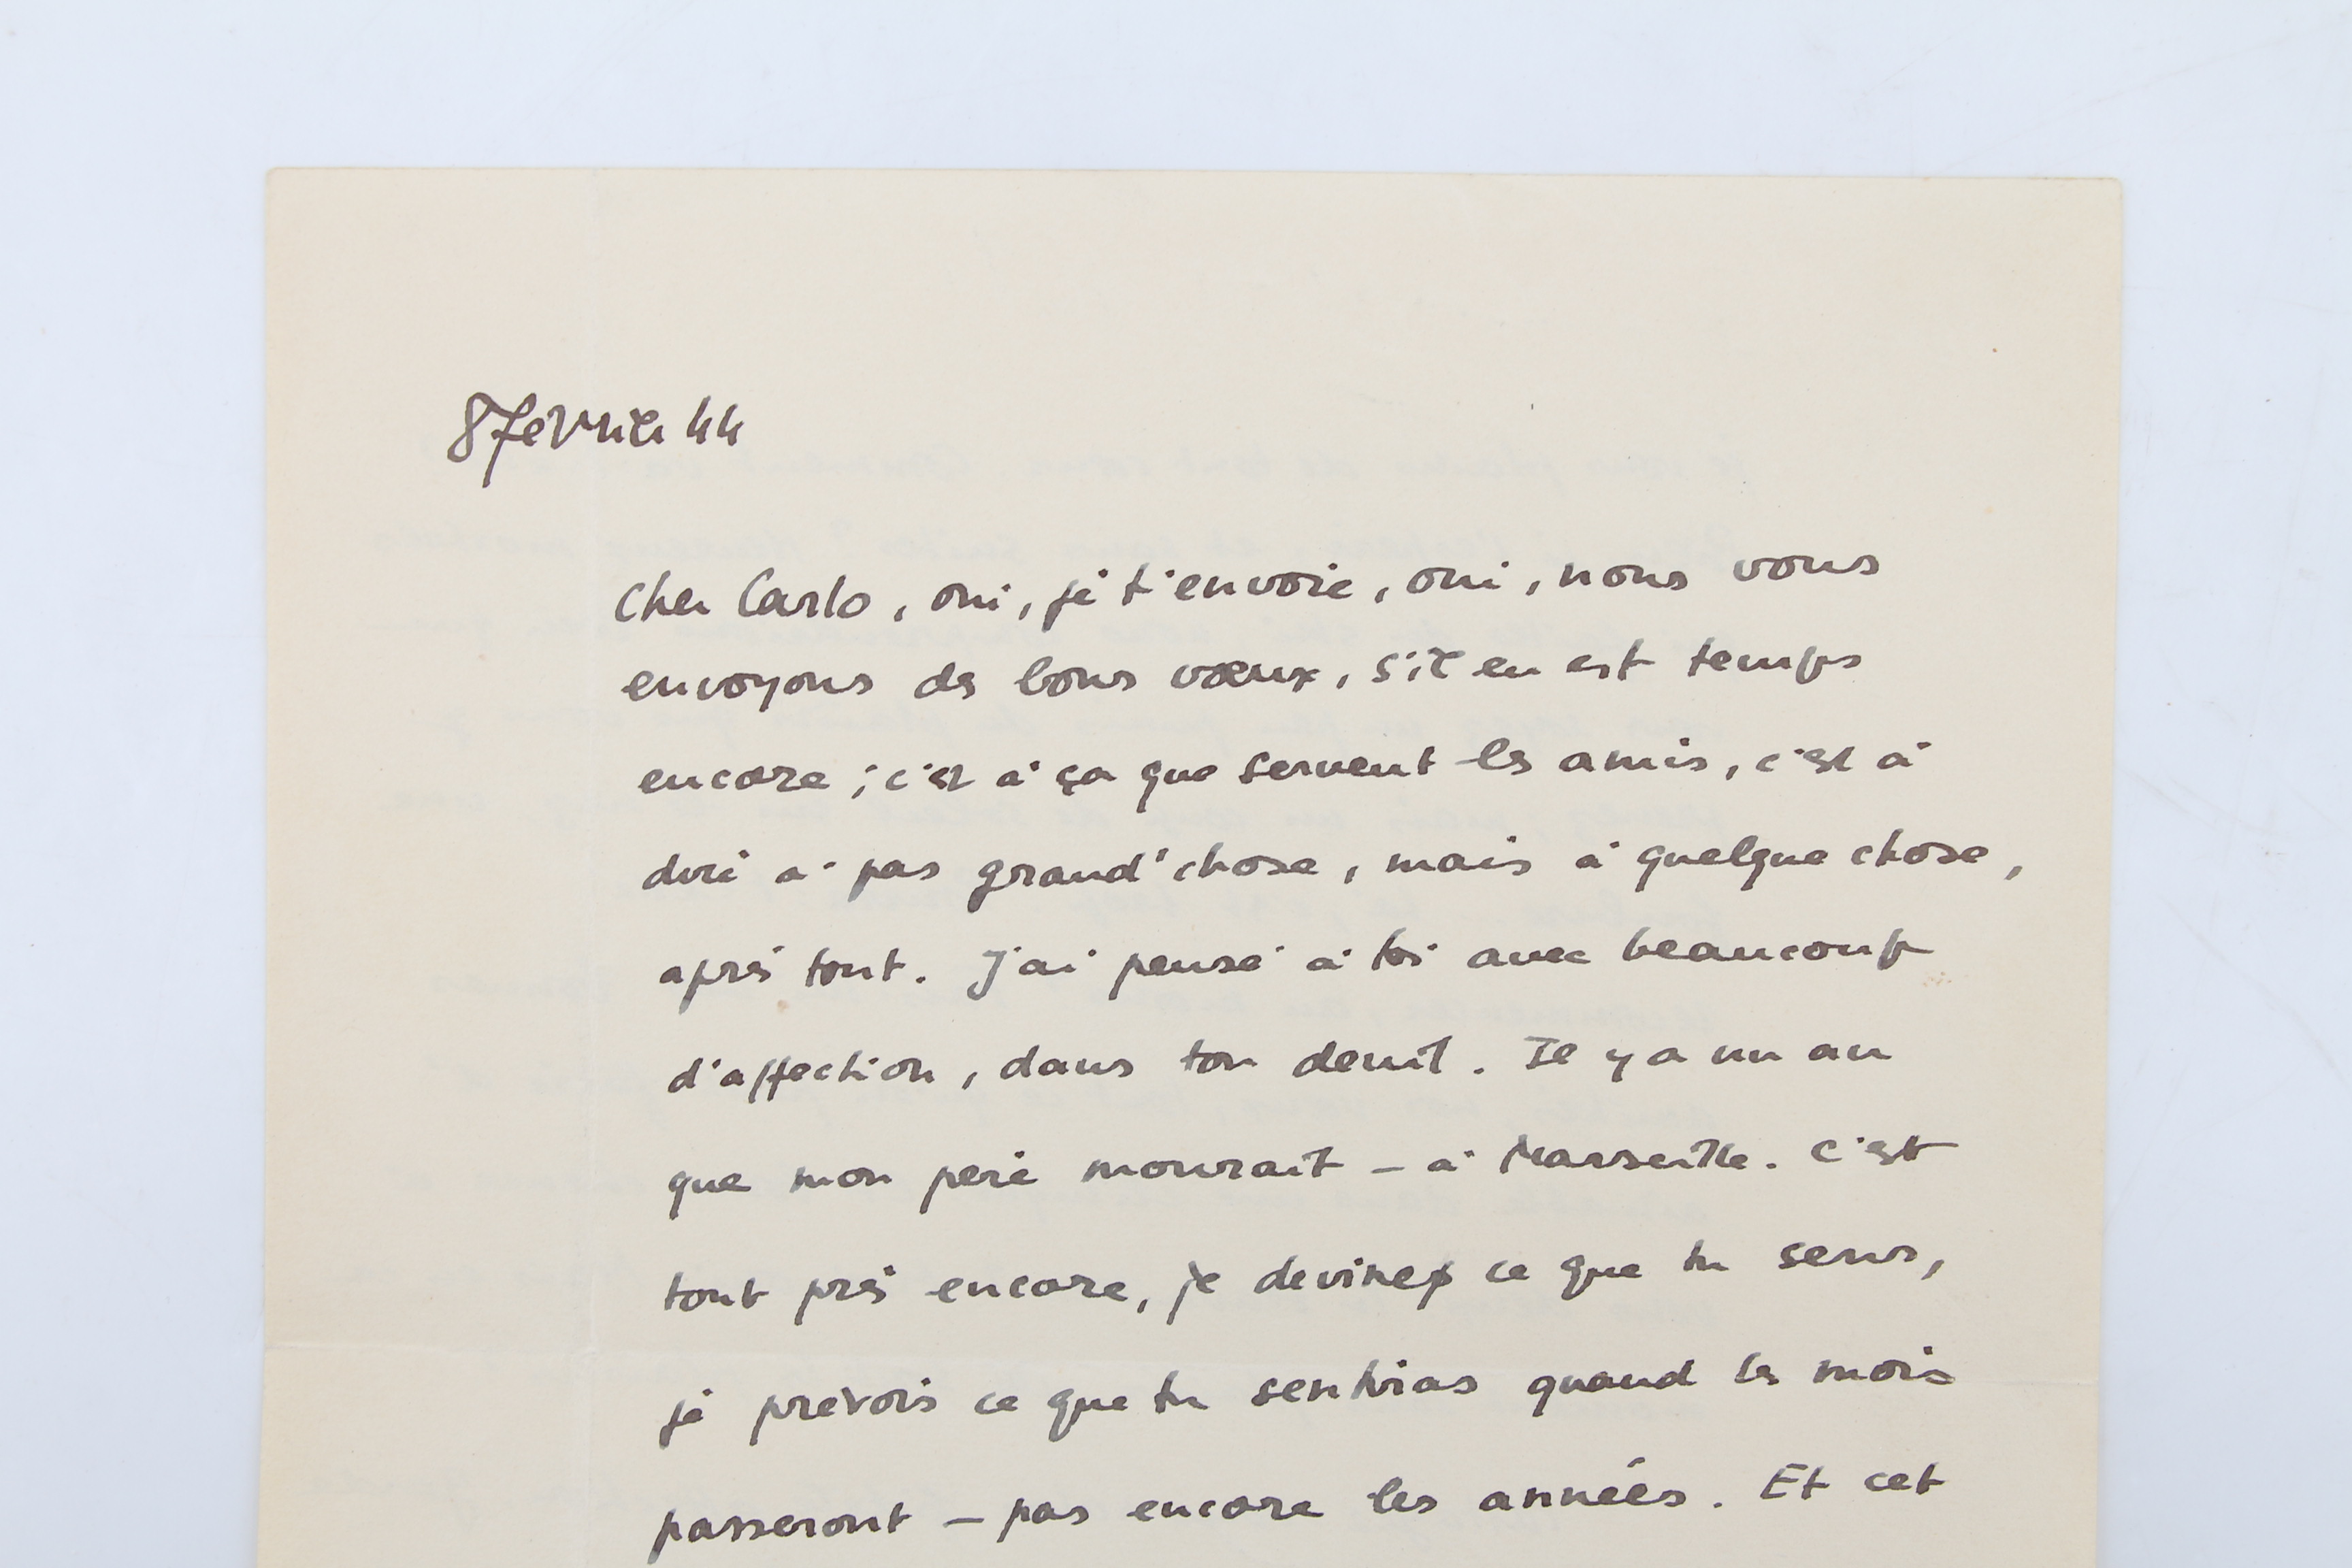 8 février 44
Cher Carlo, oui, je t'envoie, oui, nous vous
envoyons des bons vœux, s'il en est temps
encore ; c'est à ça que servent les amis, c'est à
dire à pas grand'chose, mais à quelque chose,
après tout. J'ai pensé à toi avec beaucoup
d'affection, dans ton deuil. Il y a un an
que mon père mourait – à Marseille. C'est
tout près encore, je devine ce que tu sens,
je prévois ce que tu sentiras quand les mois
passeront – pas encore les années. Et cet